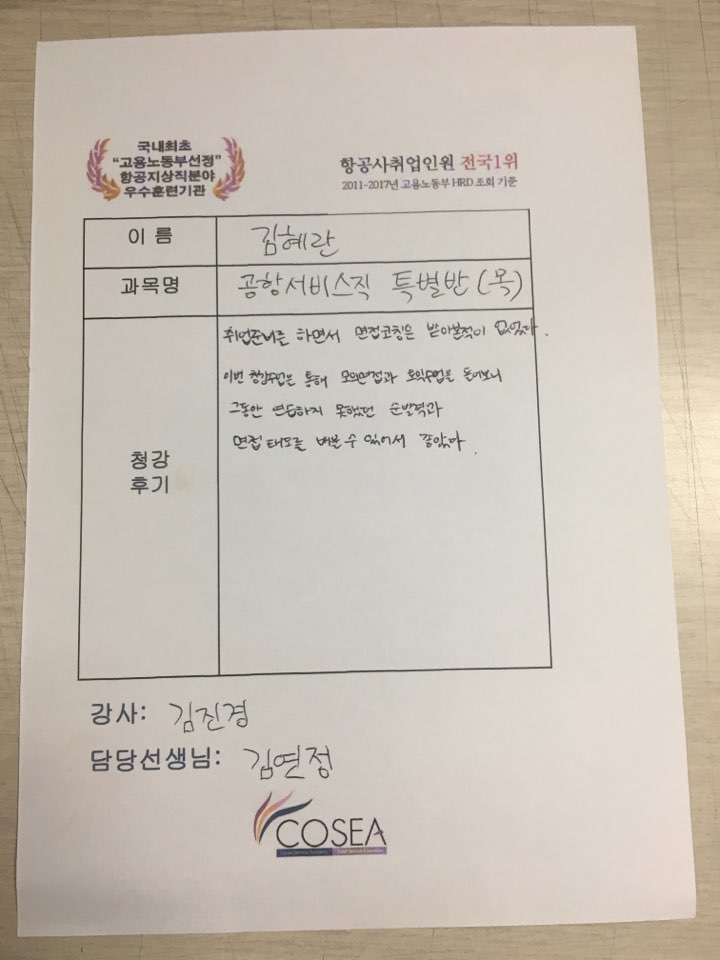 국내최초
"고용노동부선정"
항공지상직분야
우수훈련기관
항공사취업인원 전국1위
2011-2017년 고용노동부 HRD 조회 기준
이 름
김혜란
과목명
공항서비스직 특별반(목)
청강
후기
취업준비를 하면서 면접코칭은 받아본적이 없었다.
이번 청강수업은 통해 모의면접과 토익수업을 들어보니
그동안 연습하지 못했던 순발력과
면접 태도를 배울 수 있어서 좋았다.
강사: 김진경
담당선생님: 김연정
COSEA